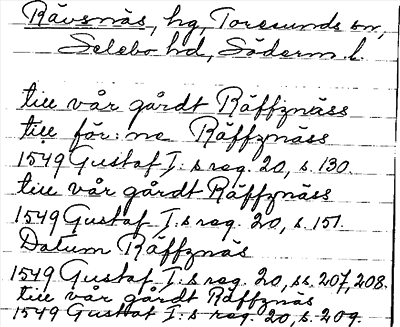 Rävsnäs, hg, Toresunds sn,
Selebo hd, Söderm. l.
till vår gårdt Räffznäss
till för: ne Räffznäss
1549 Gustaf I:s reg. 20, s. 130.
till vår gårdt Räffznäss
1549 Gustaf I:s reg. 20, s. 151.
Datum Räffznäs
1549 Gustaf I:s reg. 20, ss. 207, 208.
till vår gårdt Räffznäs
1549 Gustaf I:s reg. 20, s. 209.